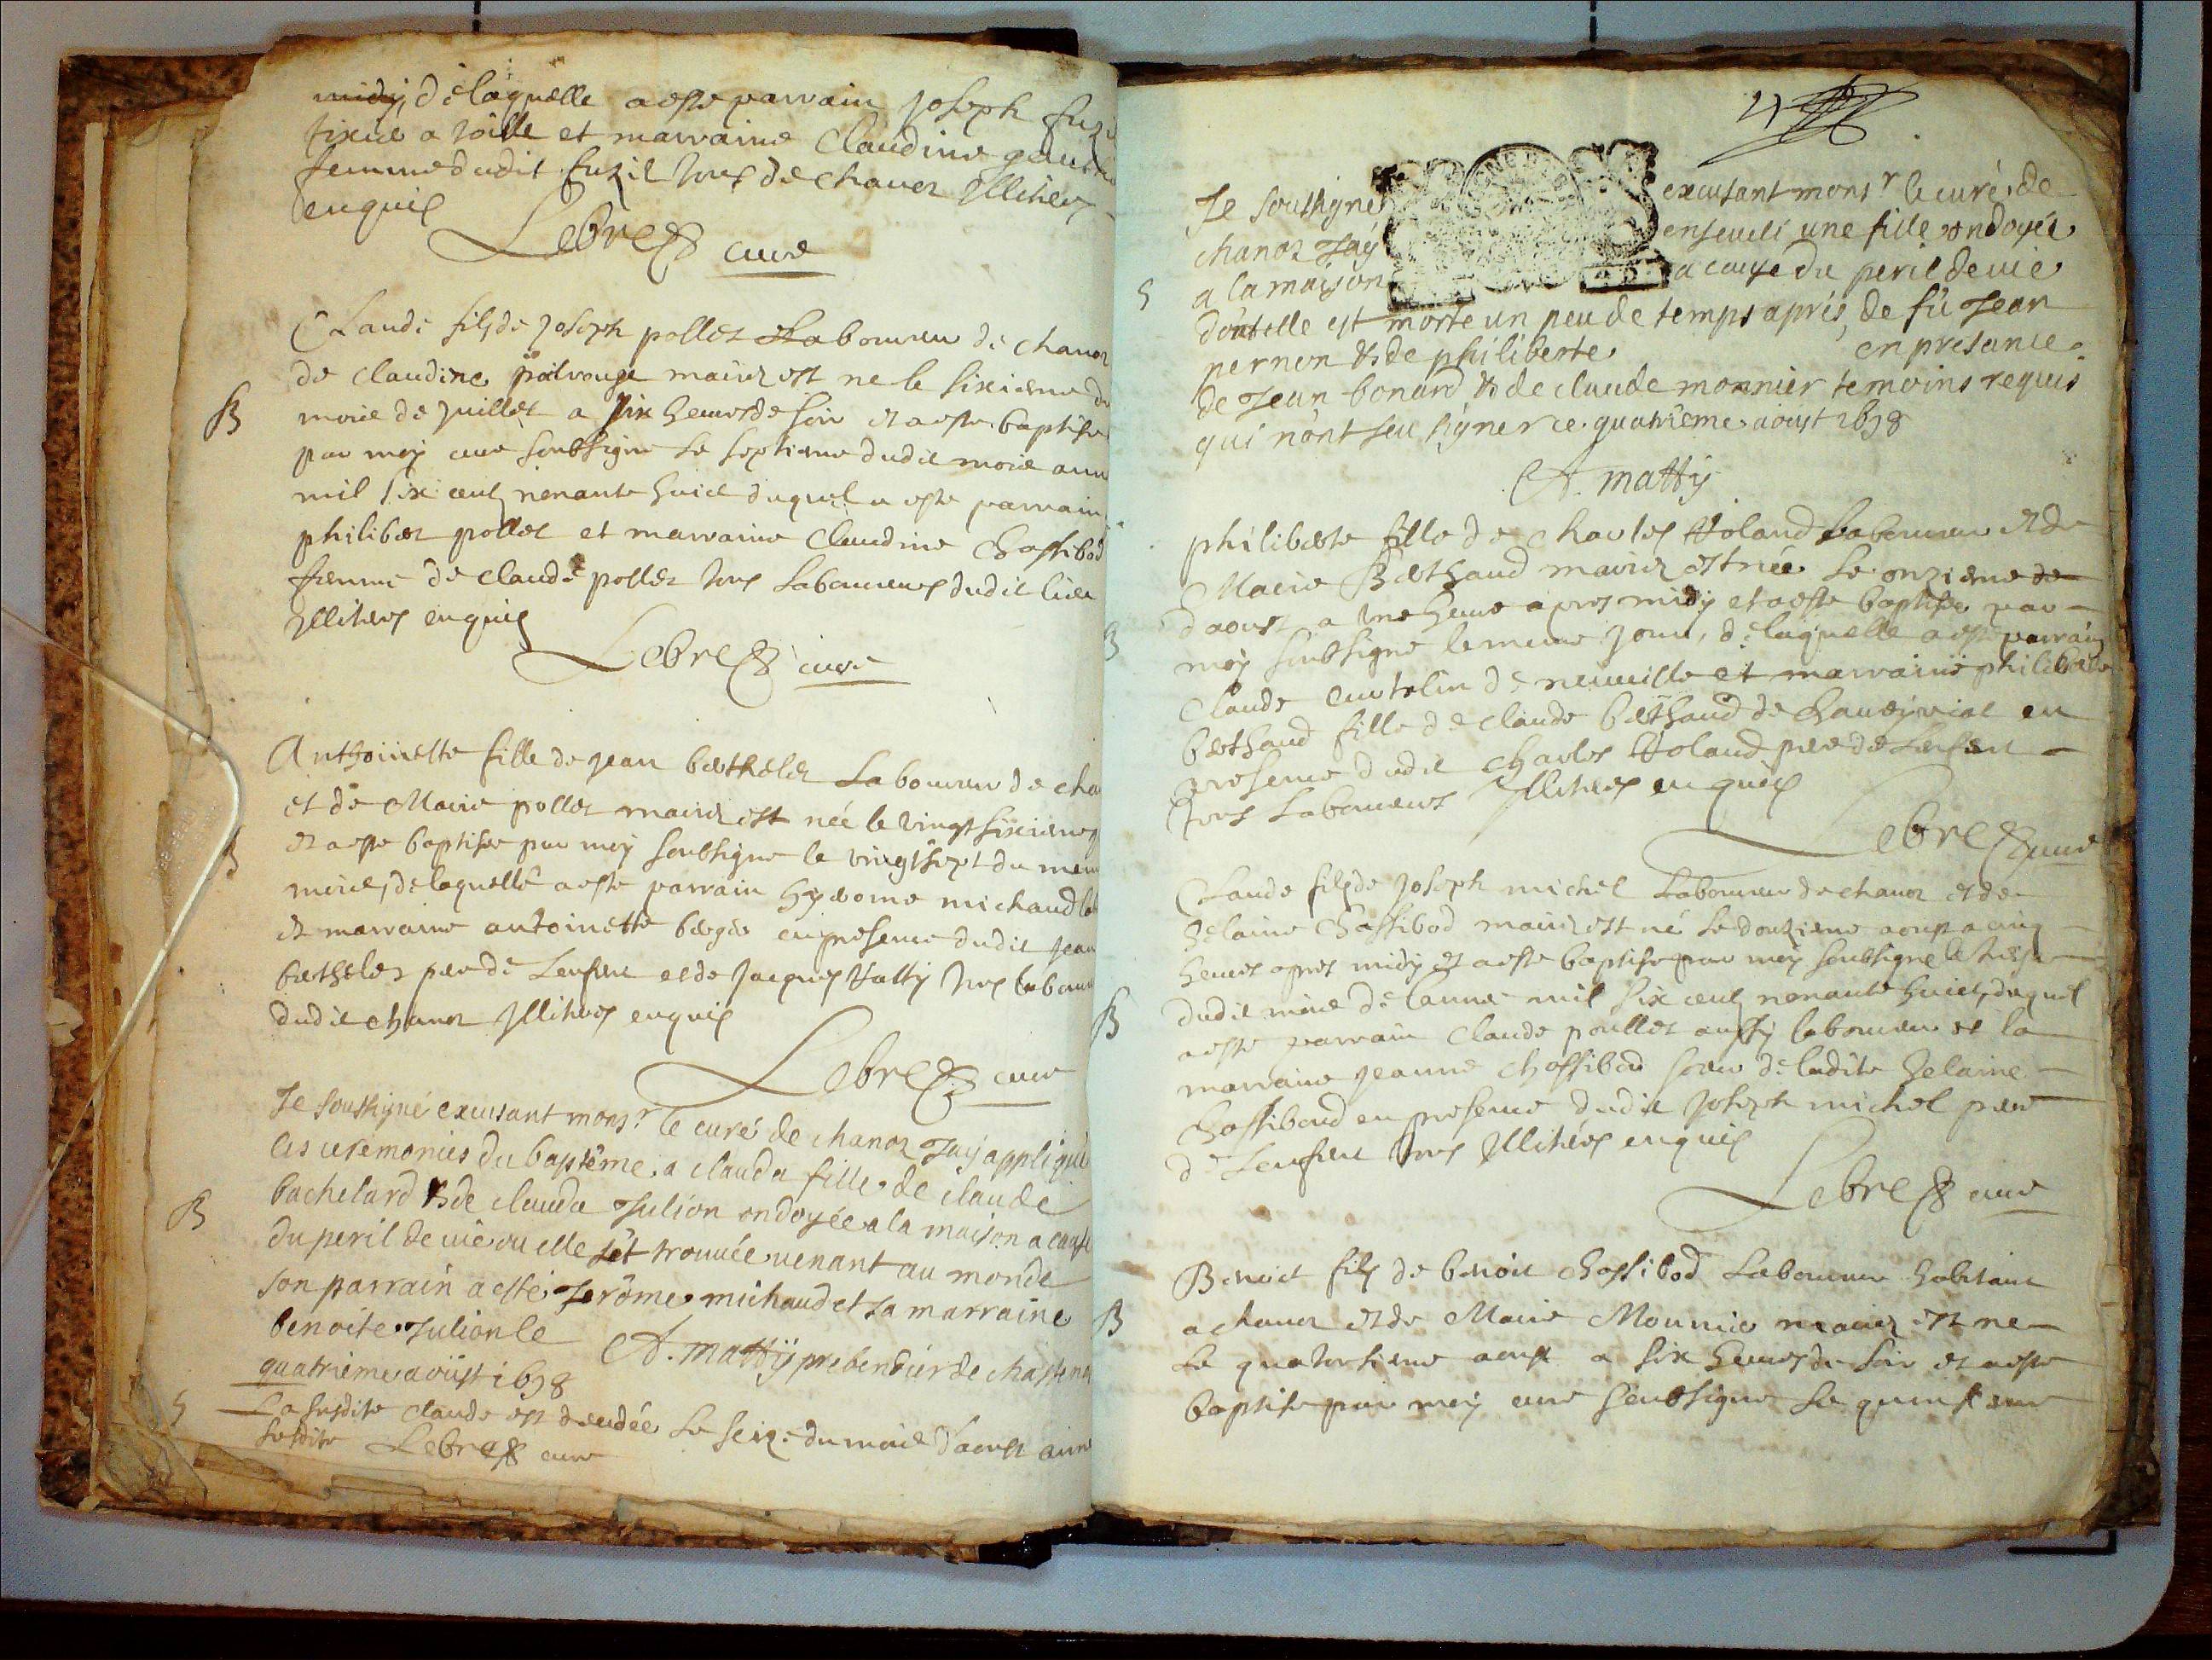 midy, de laquelle a este parrain Joseph fuzi
tixier a toille et marraine Claudine
femme dudit fuzil tous de chanoz Illiterez
enquis
Lebret cure
Claude filz de Joseph pollet Laboureur de chanoz
de Claudine mariez est ne le sixieme du
B
mois de Juillet a six heures de soir et a este baptise
par moy cure soubsigne le septieme dudit mois anne
mil six centz nonante huict duquel a este parrain
philiber pollet et marraine Claudine Chassibod
femme de claude pollet tous Laboureurs dudit lieu
Illiterez enquis
Lebret cure
Anthoinette fille de Jean berthelet Laboureur de cha
et de Marie pollet mariez est née le vingt sixieme
B
et a este baptisee par moy soubsigne le vingt sept du mem
mois, de laquelle a este parrain hyerome michaud lab
et marraine antoinette berger en presence dudit Jean
berthelet pere de Lenfent et de Jacques tous labour
dudit chanoz Illiterez enquis
Lebret cure
Je soussigné excusant monsr. le curé de chanoz Jay appliqué
les ceremonies du baptême a clauda fille de claude
bachelard & de clauda Julion ondoyée a la maison a cause
B
du peril de vie ou elle s'êt trouuée uenant au monde
son parrain a esté Jerôme michaud et sa marraine
benoite Julion le
A. mattÿ prebendier de chastenay
quatrième aoüst 1698
S
La susdite claude est decedée le seize du mois daoust anne
susdite Lebret cure
4
Je soussigné excusant monsr le curé de
chanoz Jaÿ enseueli une fille ondoyée
S
a la maison a cause du peril de uie
dont elle est morte un peu de temps après, de fü Jean
pernon & de philiberte en presance
de Jean bonard & de claude monnier temoins requis
qui n'ont sceu signer ce quatrième aoust 1698
A. mattÿ
philiberte fille de Charles Laboureur et de
Marie Berthaud mariez est née le onzieme de
daoust a une heure apres midy et a este baptisee par
B
moy soubsigne le meme Jour, de laquelle a este parrain
Claude de neuuille et marraine philiberte
berthaud fille de claude berthaud de en
presence dudit Charles pere de Lenfent
tous Laboureurs Illiterez enquis
Lebret cure
Claude filz de Joseph michel Laboureur de chanoz et de
helaine Chassibod mariez est né le douzieme aoust a cinq
heures apres midy et a este baptise par moy soubsigne le
B
dudit mois de lanne mil six centz nonante huict, duquel
a este parrain Claude poullet aussy laboureur et la
marraine Jeanne chassibod soeur de ladite helaine
Chassiboud en presence dudit Joseph michel pere
de Lenfent tous Illiterez enquis
Lebret cure
Benoit filz de benoit Chassibod Laboureur habitant
B
a chanoz et de Marie Mounier mariez est ne
le quatorsieme aoust a six heures de soir et a este
baptise par moy cure soubsigne le quinsieme